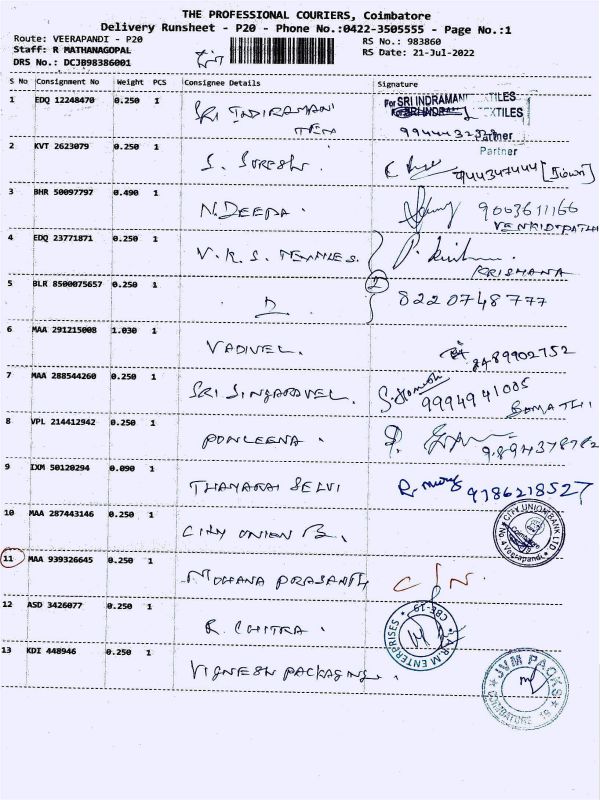 THE PROFESSIONAL COURIERS, Coimbatore
Delivery Runsheet - P20 - Phone No.:0422-3505555 - Page No.:1
Route: VEERAPANDI - P20
RS No.: 983860
Staff: R MATHANAGOPAL
RS Date: 21-Jul-2022
DRS No.: DCJB98386001
S No Consignment No Weight PCS Consignee Details Signature
1 EDQ 12248470 0.250 1 SRI INDIRAMANI TEX
For SRI INDRAMANI TEXTILES
Partner
Partner
2 KVT 2623079 0.250 1 S. SURESH.
3 BHR 50097797 0.490 1 N.DEEPA. 9003611166
VENKIDUPATHI
4 EDQ 23771871 0.250 1 V.K.S. TEXTILES.
KRISHANA
5 BLR 8500075657 0.250 1 2 8220748777
6 MAA 291215008 1.030 1 VADIVEL. 8489902752
7 MAA 288544260 0.250 1 SRI SINGARAVEL. 9994941005
8 VPL 214412942 0.250 1 PONLEENA.
9 IXM 50120294 0.090 1 THANARAI SELVI 9786218527
10 MAA 287443146 0.250 1 CITY UNION B.
CITY UNION BANK LTD
Veerapandi
11 MAA 939326645 0.250 1 MOHANA PRASANTH C/N.
12 ASD 3426077 0.250 1 R. CHITRA.
R.M ENTERPRISES CBE-19
13 KDI 448946 0.250 1 VIGNESH PACKAGING.
JVM PACKS
COIMBATORE 19